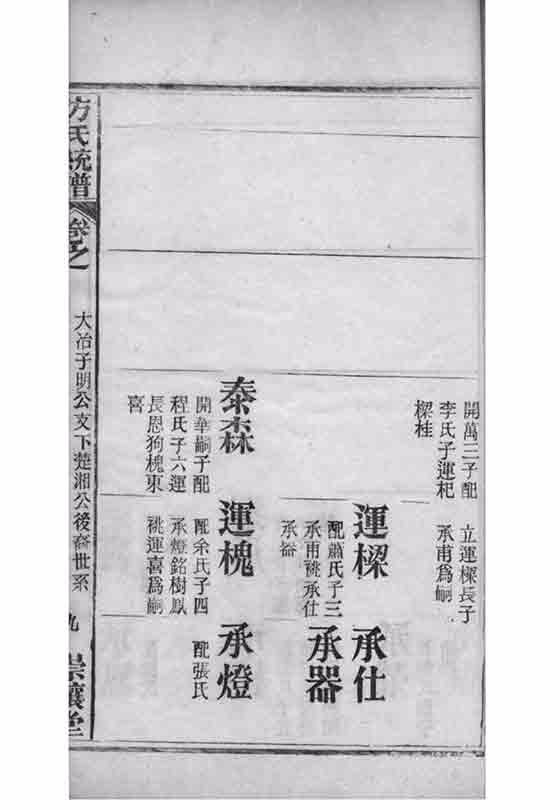 開萬三子配
李氏子運杞
樑桂
立運樑長子
承甫爲嗣
運樑
配蕭氏子三
承甫祧承仕
承器
承仕
承器
泰森
開華嗣子配
程氏子六運
長恩狗槐東
喜
運槐
配余氏子四
承燈銘樹鳳
祧運喜爲嗣
承燈
配張氏
方氏統譜
卷之
大冶子明公支下楚湘公後裔世系
九
崇讓堂